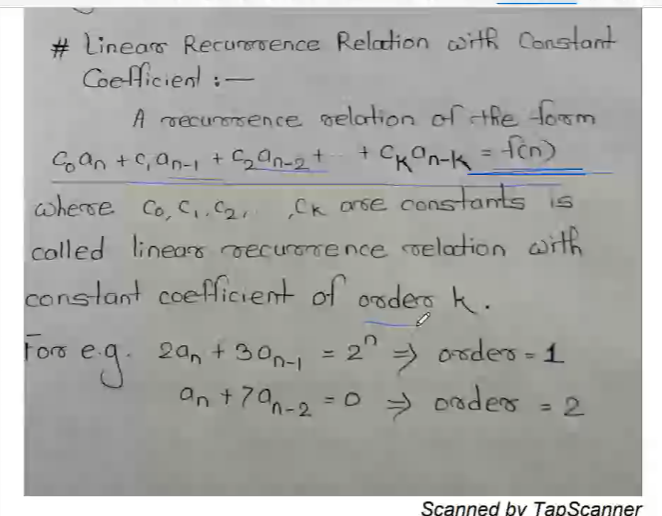 # Linear Recurrence Relation with Constant
Coefficient :—
A recurrence relation of the form
C₀aₙ + C₁aₙ₋₁ + C₂aₙ₋₂ + .. + Cₖaₙ₋ₖ = f(n)
where C₀, C₁, C₂, ,Cₖ are constants is
called linear recurrence relation with
constant coefficient of order k.
For e.g. 2aₙ + 3aₙ₋₁ = 2ⁿ ⇒ order = 1
aₙ + 7aₙ₋₂ = 0 ⇒ order = 2
Scanned by TapScanner